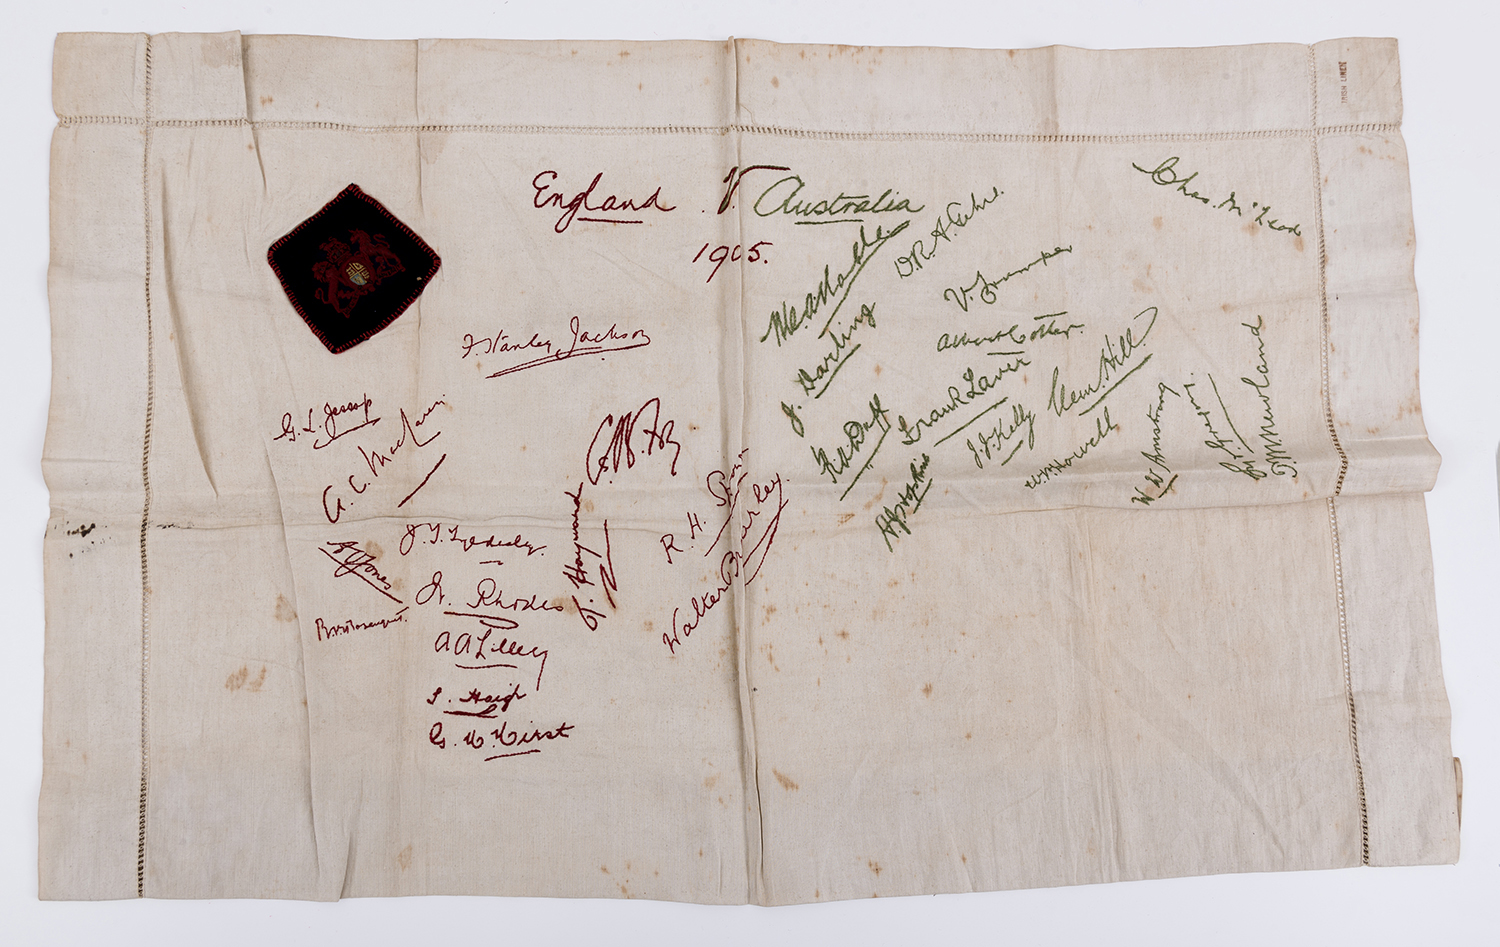 England V. Australia
1905.
IRISH LINEN
Chas. McLeod
D.R.A. Gehrs.
M.A. Noble.
V. Trumper
J. Darling
Albert Cotter.
F. Stanley Jackson
Clem. Hill
Frank Laver
R A Duff
J. J. Kelly
W.P. Howell
W W Armstrong
S. E. Gregory.
P M Newland
A J Hopkins
G. L. Jessop
A. C. MacLaren
C B Fry
R. H. Spooner
Walter Brearley.
T. Hayward
J. T. Tyldesley.
A O Jones
W. Rhodes
B.J.T. Bosanquet.
A A Lilley
S. Haigh
G. H. Hirst